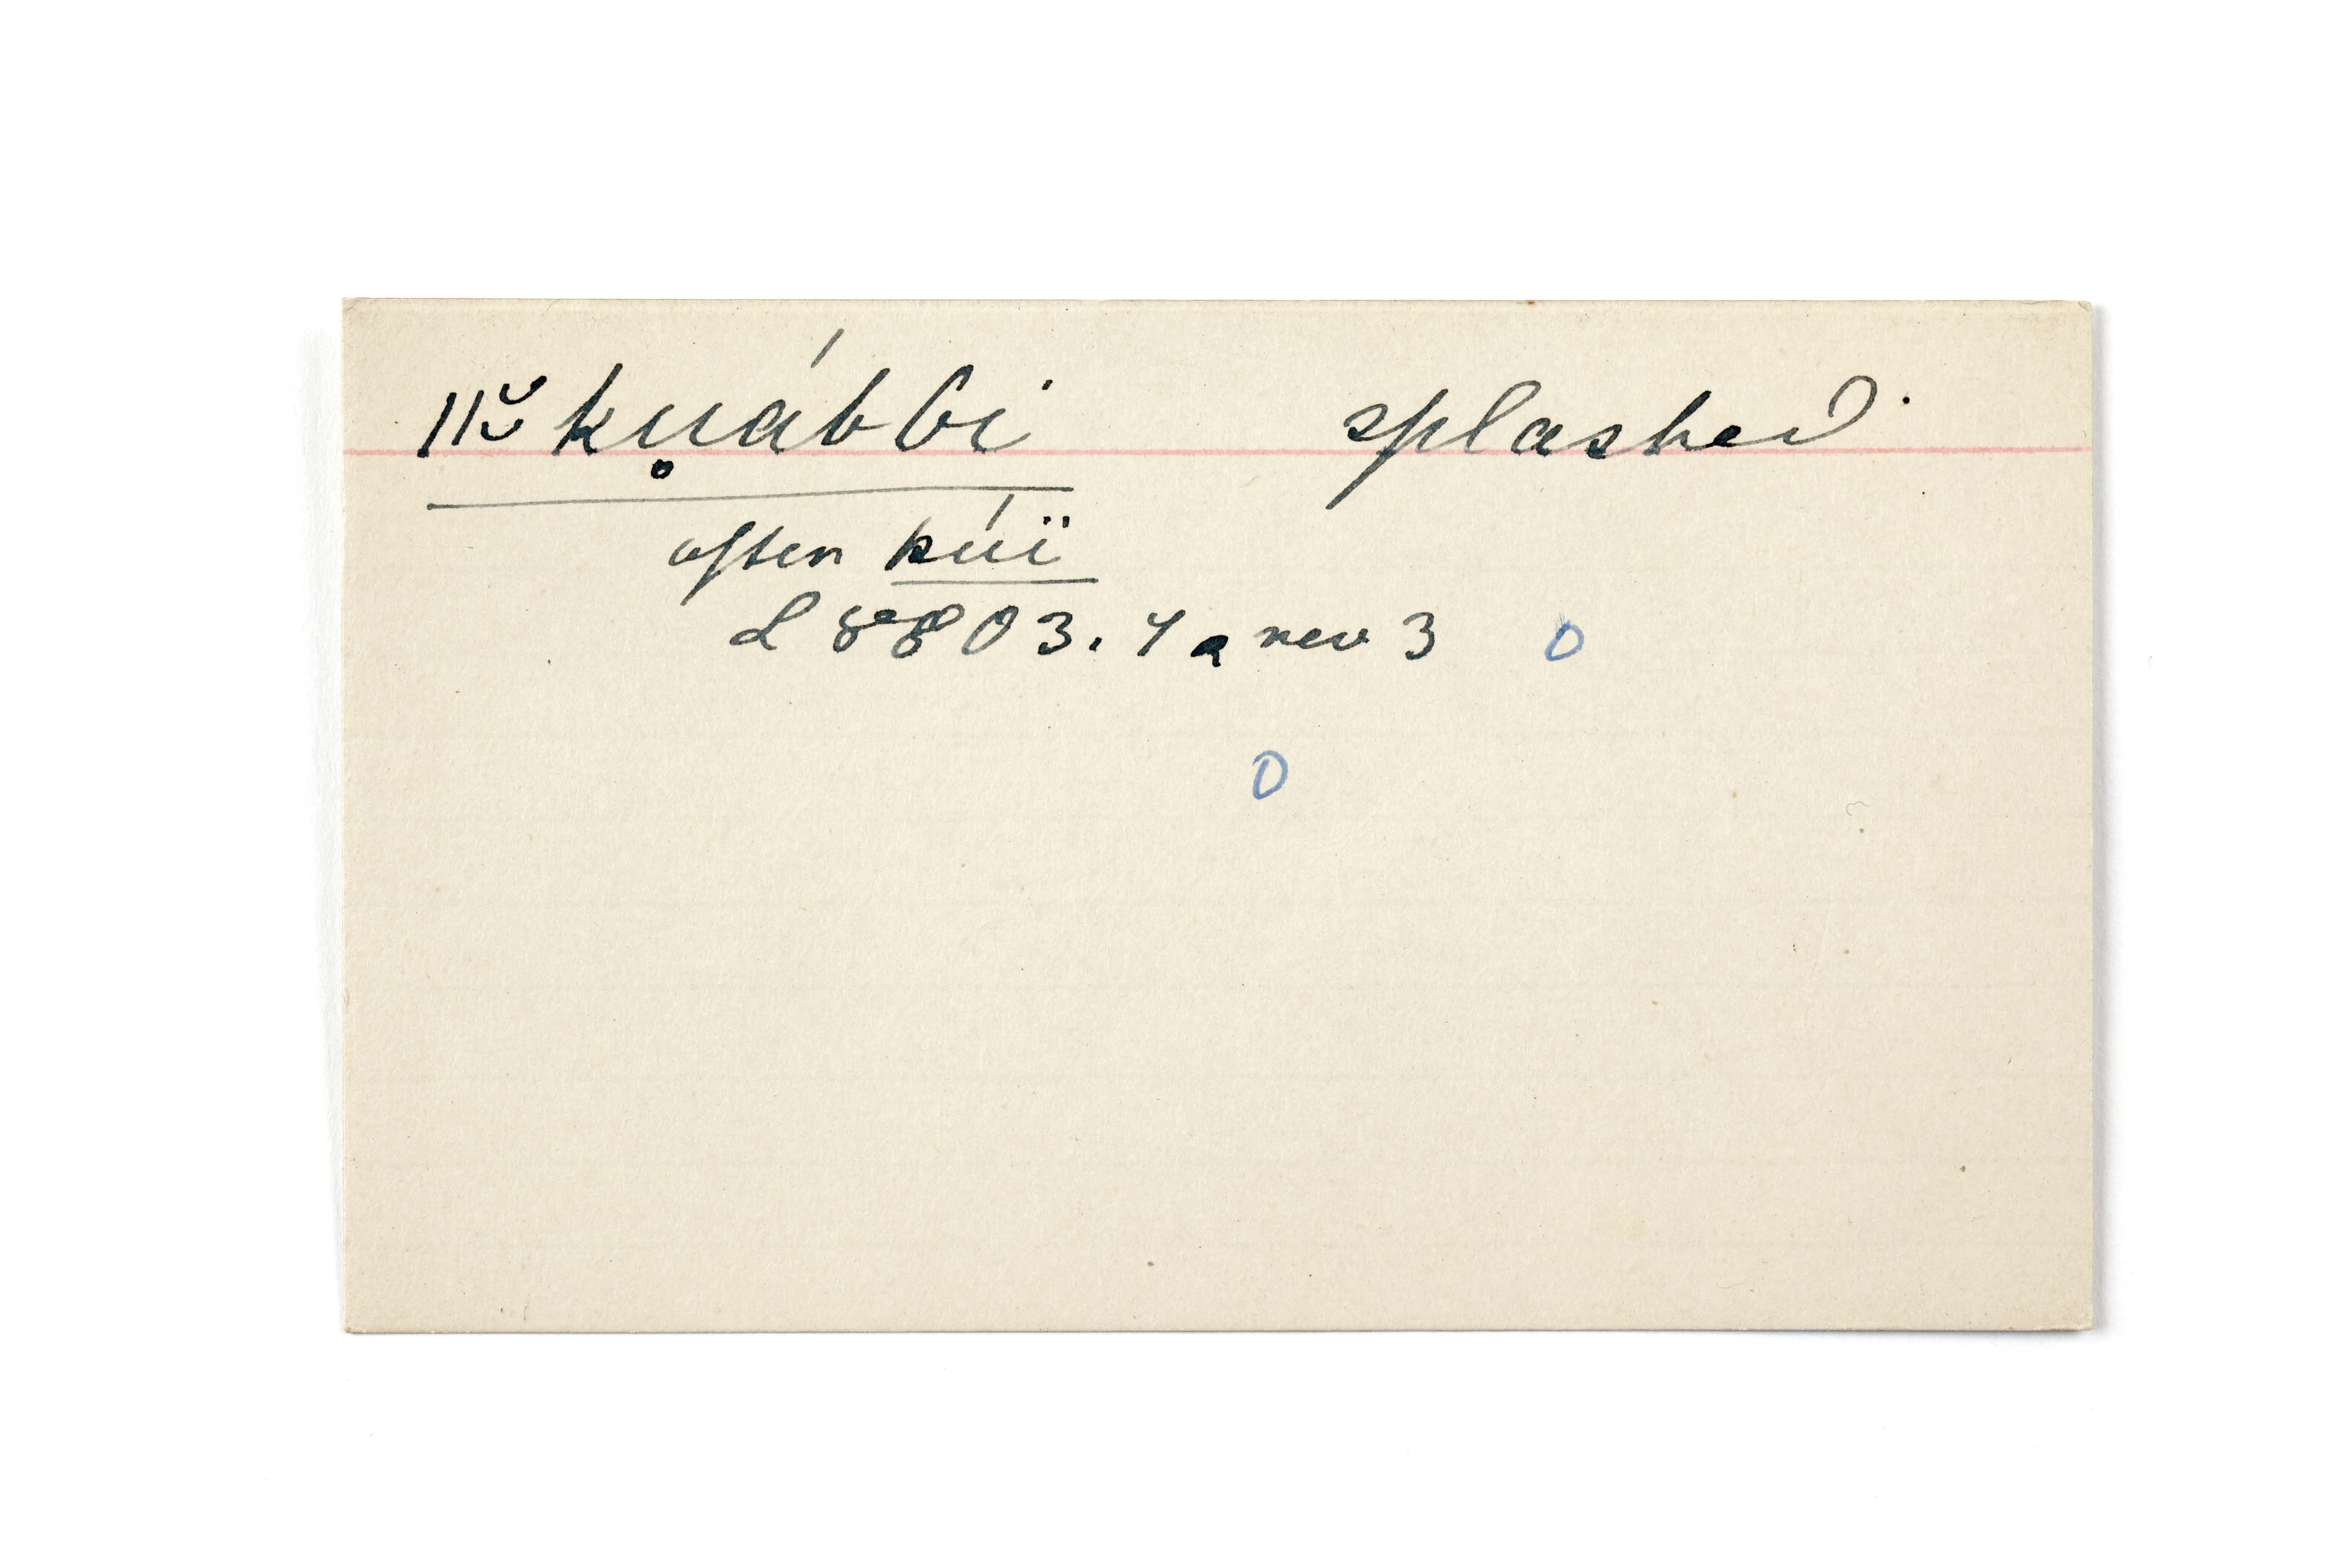 ǁk̆ kụábbi splashed.
often kúï
L 8803. 4a rev 3 0
0